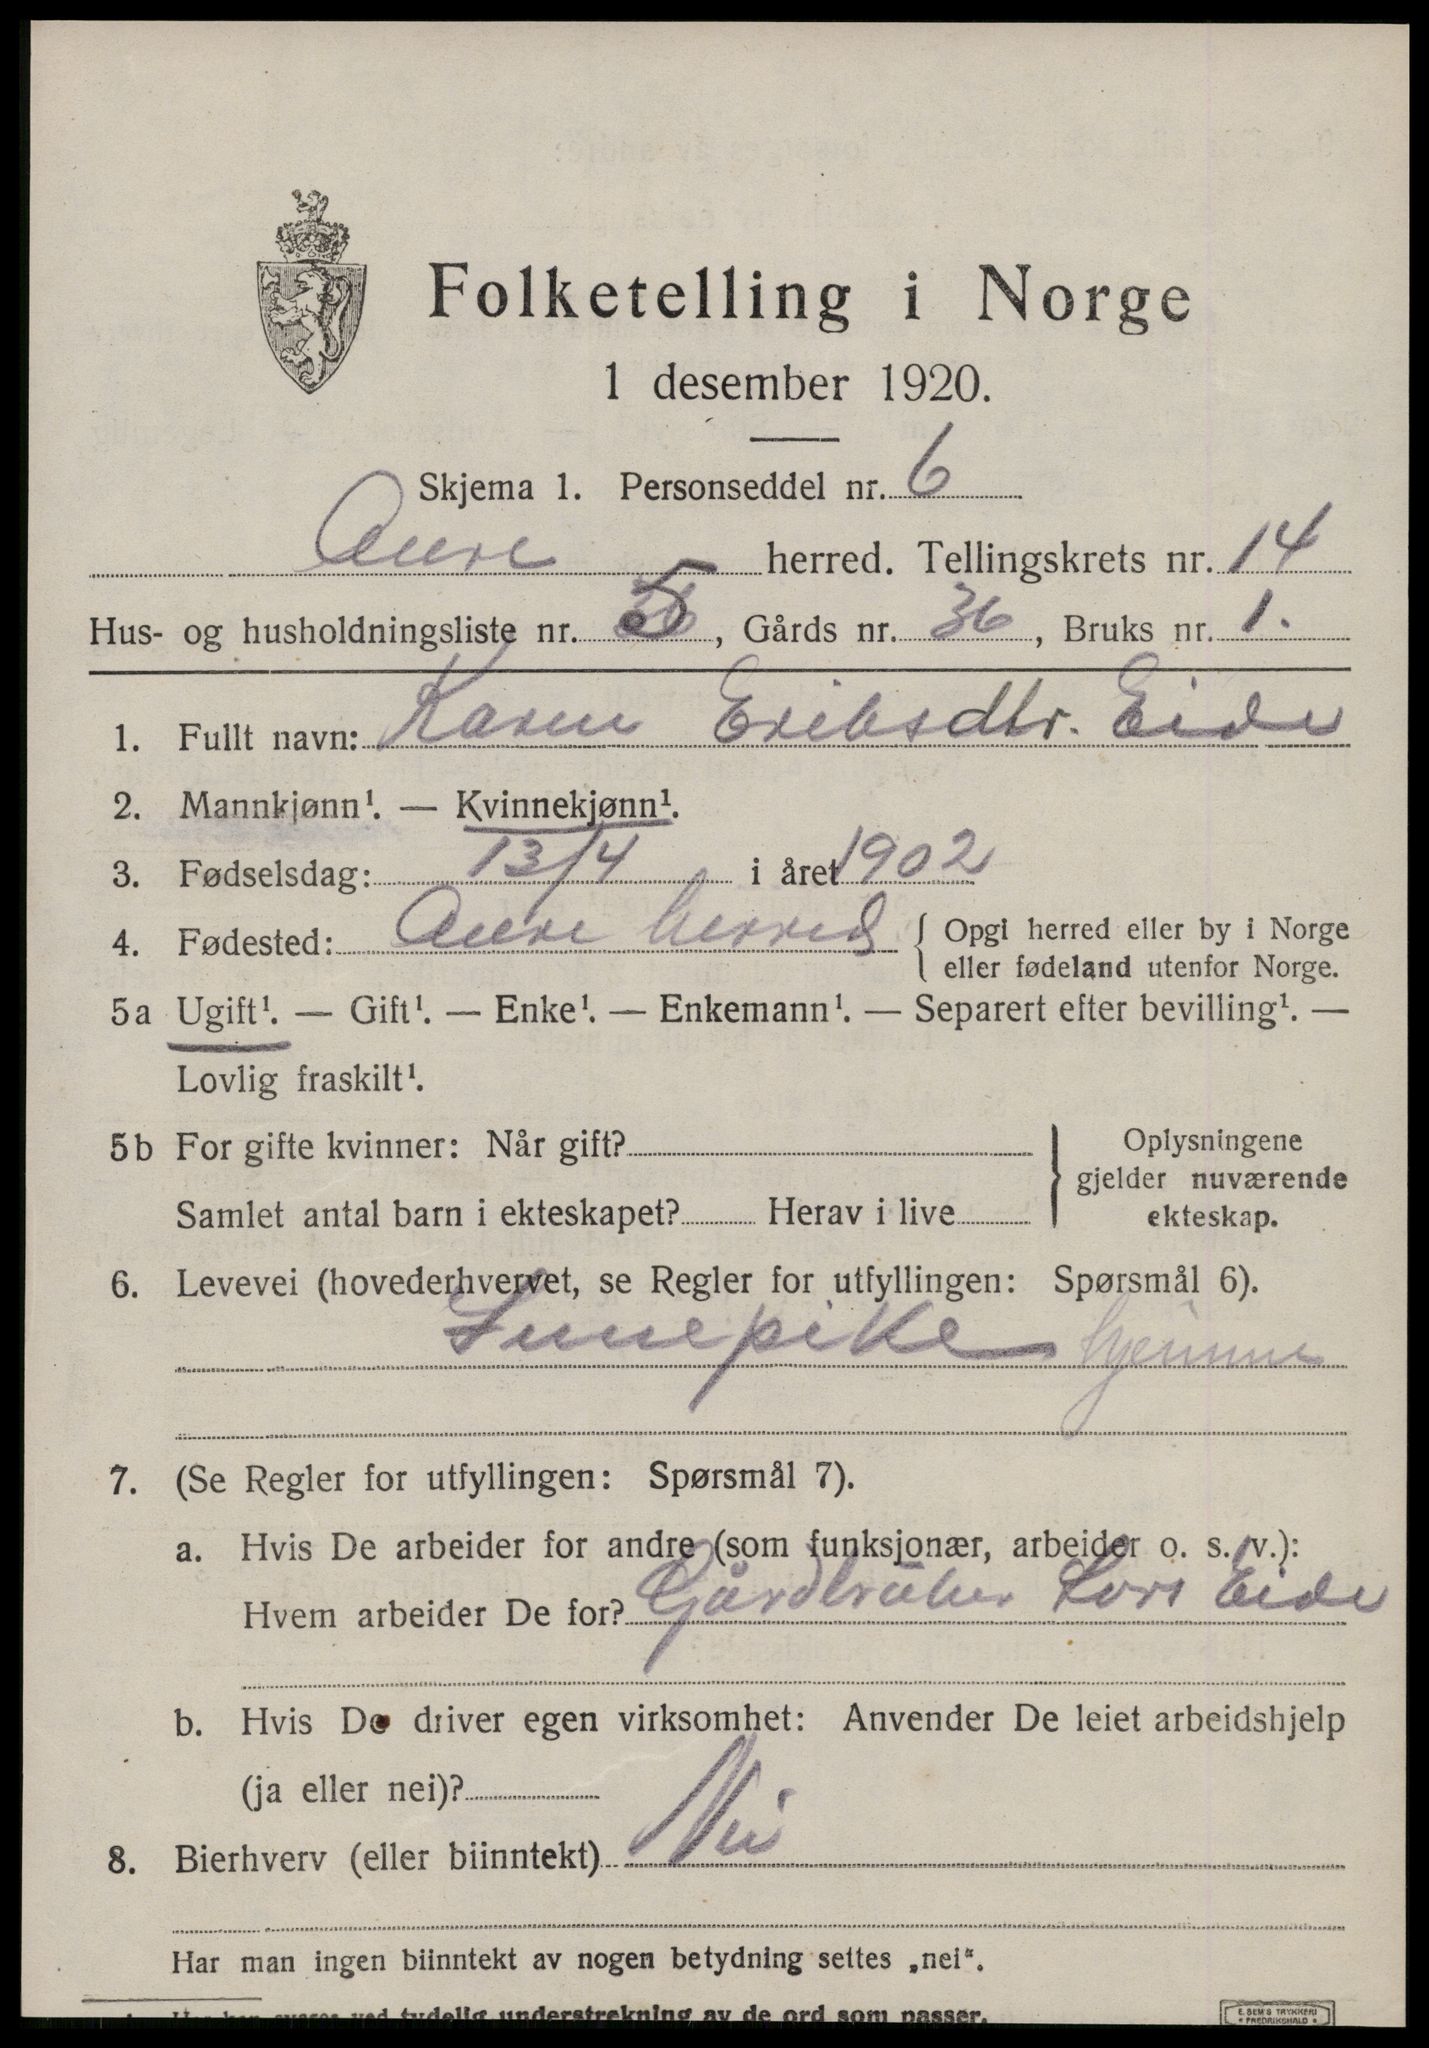 Folketelling i Norge
1 desember 1920.
Skjema 1. Personseddel nr. 6
Aure herred. Tellingskrets nr. 14
Hus- og husholdningsliste nr. 5, Gårds nr. 36, Bruks nr. 1.
1. Fullt navn: Karen Eriksdtr. Eide
2. Mannkjønn¹. — Kvinnekjønn¹.
3. Fødselsdag: 13/4 i året 1902
4. Fødested: Aure herred { Opgi herred eller by i Norge
eller fødeland utenfor Norge.
5a Ugift¹. — Gift¹. — Enke¹. — Enkemann¹. — Separert efter bevilling¹. —
Lovlig fraskilt¹.
5b For gifte kvinner: Når gift? } Oplysningene
gjelder nuværende
Samlet antal barn i ekteskapet? Herav i live
ekteskap.
6. Levevei (hovederhvervet, se Regler for utfyllingen: Spørsmål 6).
hjemme
7. (Se Regler for utfyllingen: Spørsmål 7).
a. Hvis De arbeider for andre (som funksjonær, arbeider o. s. v.):
Hvem arbeider De for? Gårdbruker Lars Eide
b. Hvis De driver egen virksomhet: Anvender De leiet arbeidshjelp
(ja eller nei)?
8. Bierhverv (eller biinntekt) Nei
Har man ingen biinntekt av nogen betydning settes „nei".
tydelig understrekning av de ord som passer.
E. SEM'S TRYKKERI
FREDRIKSHALD